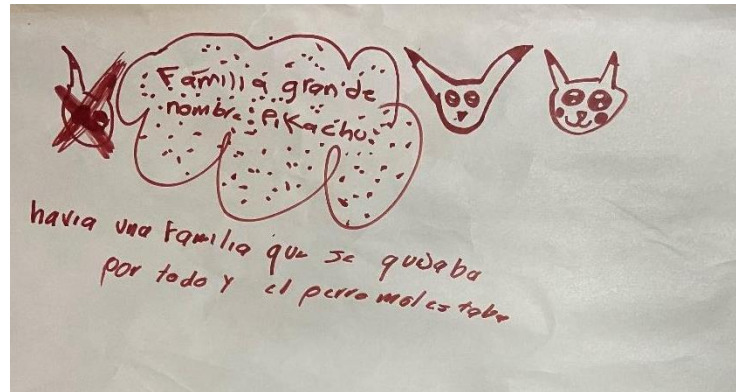 Familia grande
nombre: Pikachu.
havia una Familia que se quejaba
por todo y el perro molestaba